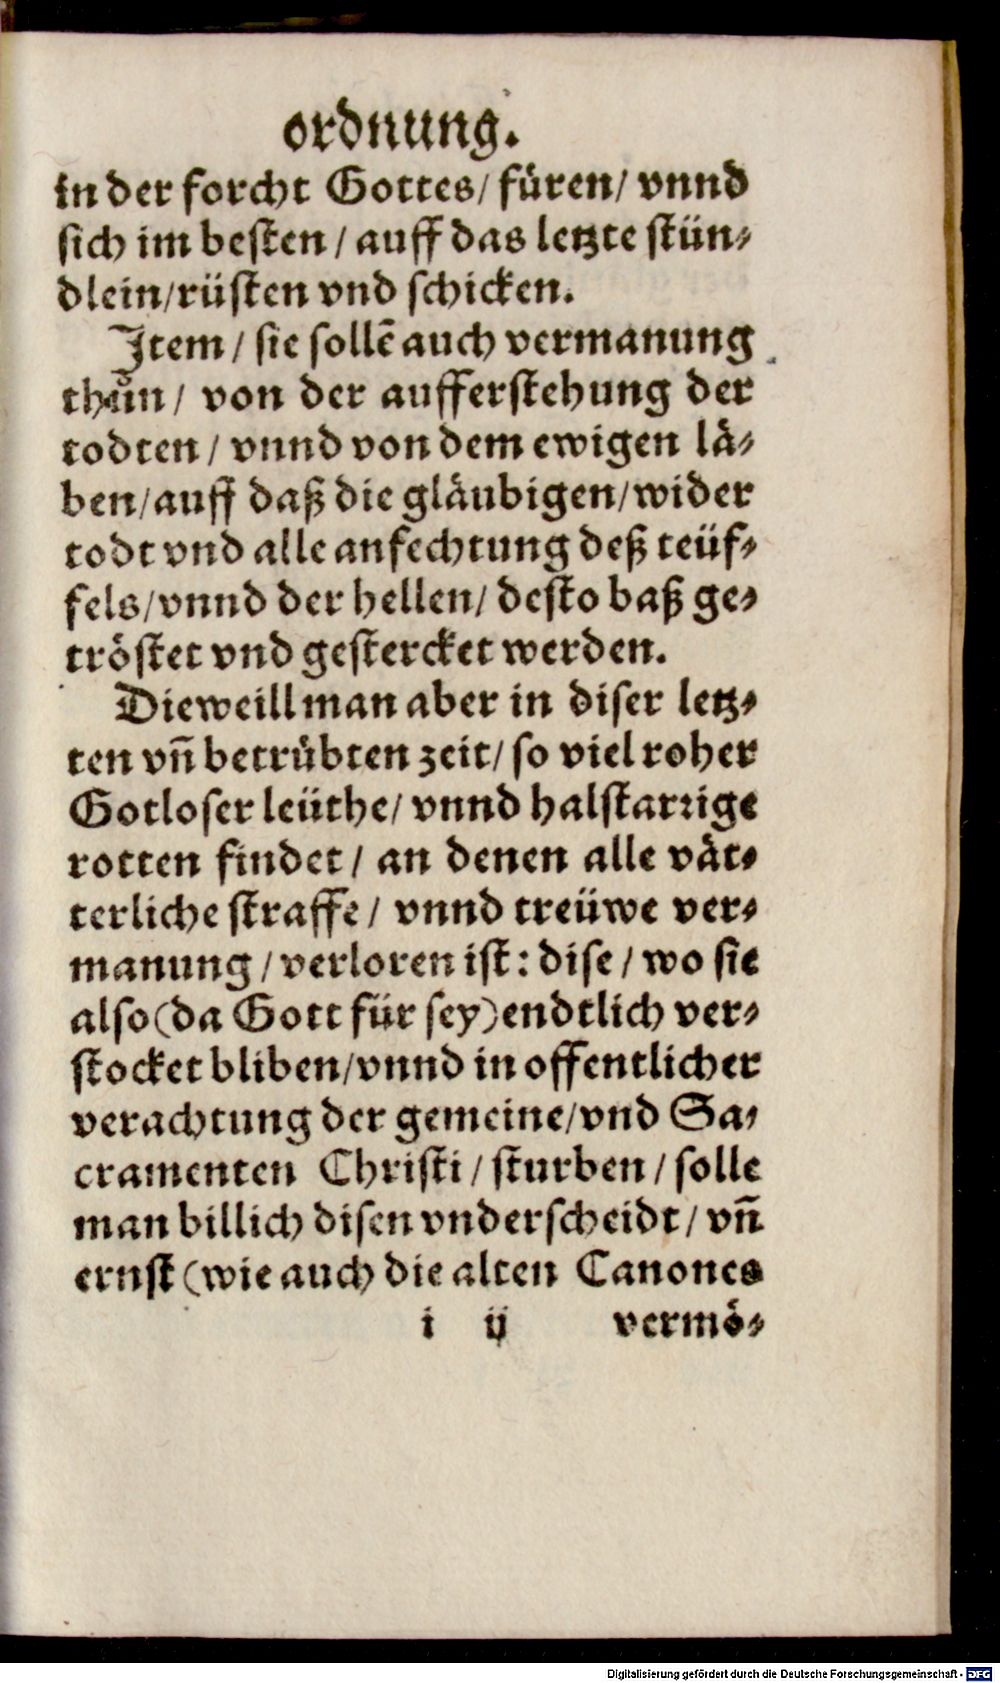 ordnung.
in der forcht Gottes/ füren/ vnnd
sich im besten / auff das letzte stün⸗
dlein/rüsten vnd schicken.
Item / sie sollē auch vermanung
thůn / von der aufferstehung der
todten / vnnd von dem ewigen lä⸗
ben/auff daß die gläubigen/wider
todt vnd alle anfechtung deß teüf⸗
fels/vnnd der hellen/ desto baß ge⸗
tröstet vnd gestercket werden.
Dieweill man aber in diser letz⸗
ten vn̄ betrübten zeit/ so viel roher
Gotloser leüthe/ vnnd halstarrige
rotten findet / an denen alle vät⸗
terliche straffe / vnnd treüwe ver⸗
manung / verloren ist: dise / wo sie
also (da Gott für sey) endtlich ver⸗
stocket bliben/vnnd in offentlicher
verachtung der gemeine/vnd Sa⸗
cramenten Christi / sturben / solle
man billich disen vnderscheidt / vn̄
ernst (wie auch die alten Canones
i ij vermö⸗
Digitalisierung gefördert durch die Deutsche Forschungsgemeinschaft - DFG